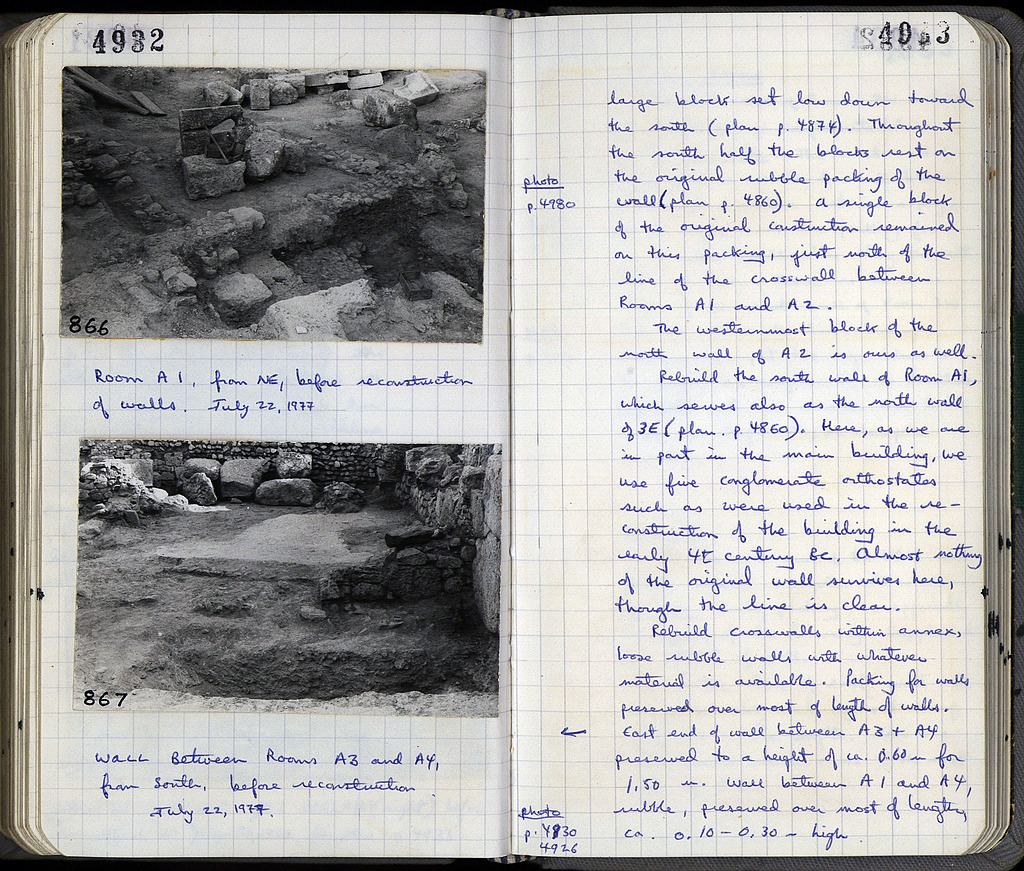 4932
866
Room A1, from NE, before reconstruction
of walls. July 22, 1977
867
Wall Between Rooms A3 and A4,
from South, before reconstruction.
July 22, 1977.
49 3
large block set low down toward
the south (plan p. 4874). Throughout
the south half the blocks rest on
photo
the original rubble packing of the
p. 4980
wall (plan p. 4860). A single block
of the original construction remained
on this packing, just north of the
line of the crosswall between
Rooms A1 and A2.
The westernmost block of the
north wall of A2 is ours as well.
Rebuild the south wall of Room A1,
which serves also as the north wall
of 3E (plan. p. 4860). Here, as we are
in part in the main building, we
use five conglomerate orthostates
such as were used in the re-
construction of the building in the
early 4th century BC. Almost nothing
of the original wall survives here,
though the line is clear.
Rebuild crosswalls within annex,
loose rubble walls with whatever
material is available. Packing for walls
preserved over most of length of walls.
← East end of wall between A3 + A4
preserved to a height of ca. 0.60 m for
1.50 m. Wall between A1 and A4,
photo
rubble, preserved over most of length,
p. 4930
ca. 0.10 - 0.30 m high
4926